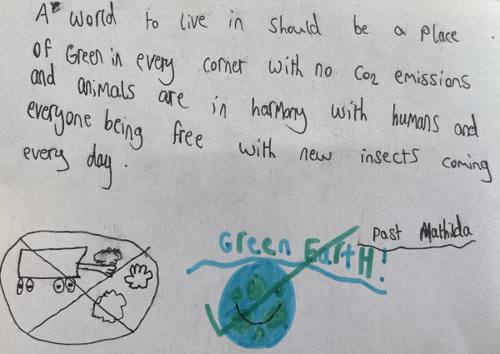 A World to live in should be a place
of Green in every corner with no Co2 emissions
and animals are in harmony with humans and
everyone being free with new insects coming
every day.
past Mathilda
Green EartH!